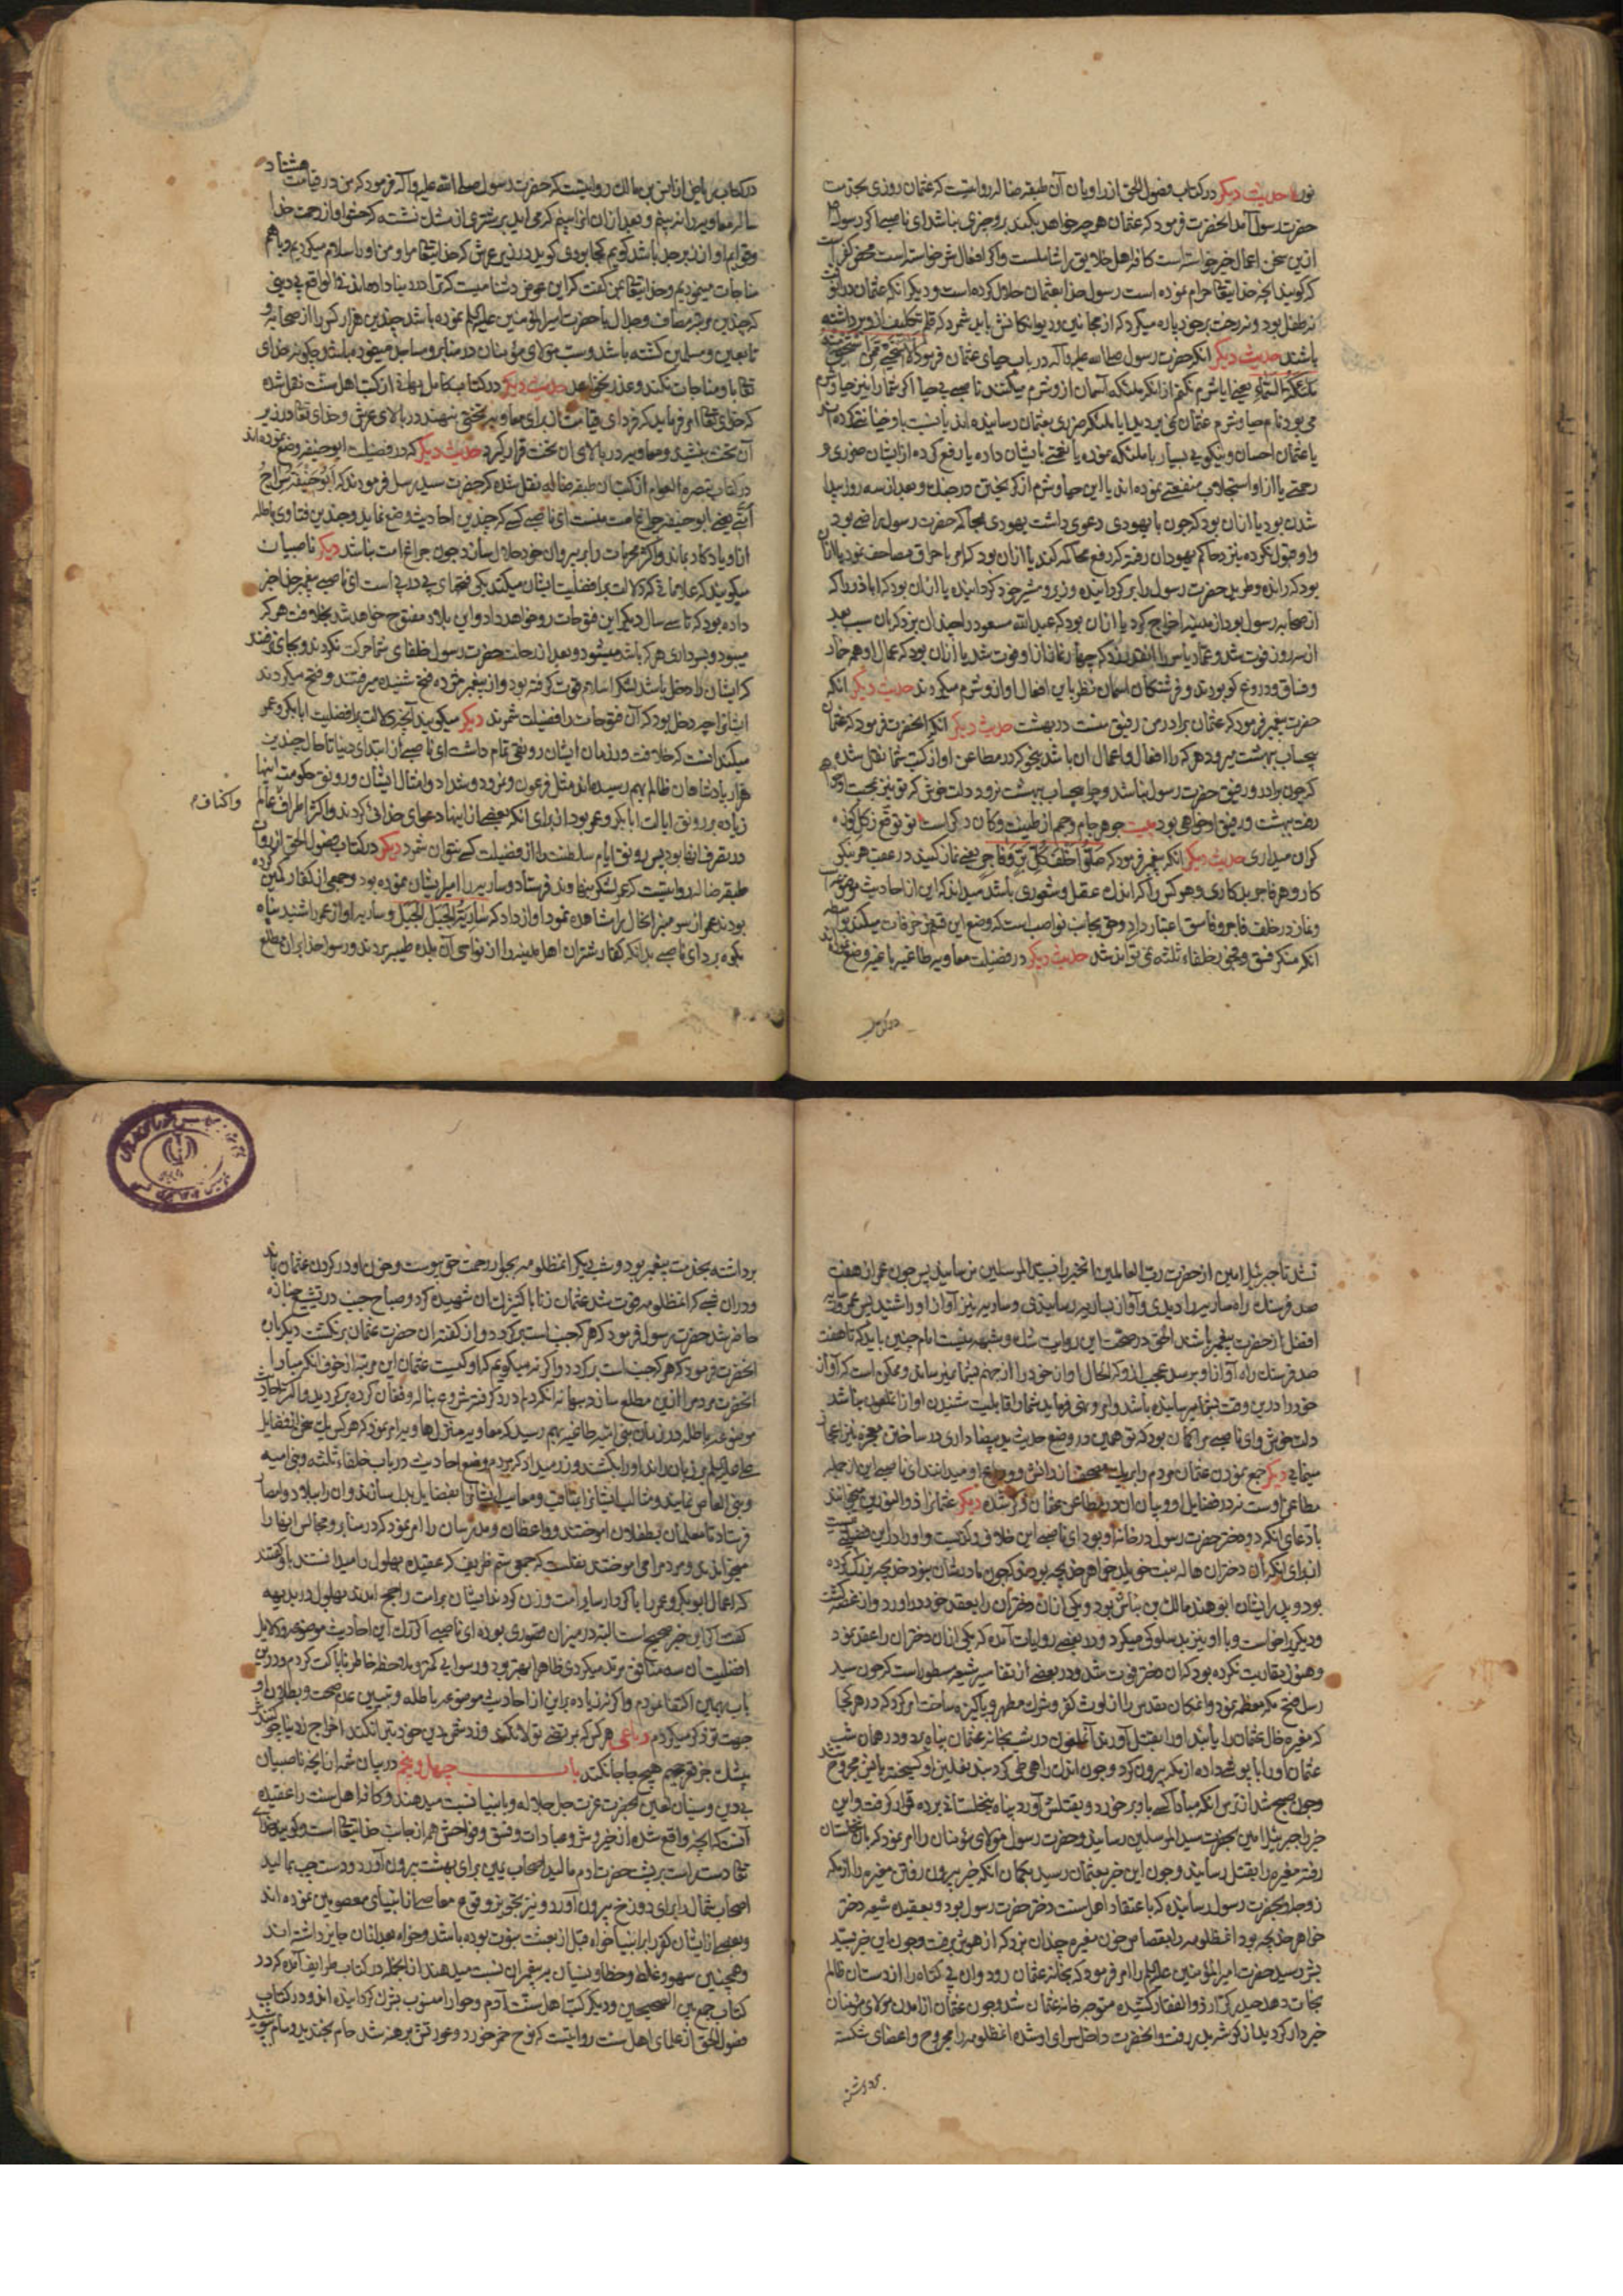 نور حدیث دیکر در کتاب فضول الحق از راویان آن طبقه ضاله روایتست که عثمان روزی بخدمت
حضرت رسول آمد انحضرت فرمود که عثمان هر چه خواهد بکند برو چیزی نباشد ای ناصبی اکر رسول
ازین سخن اعمال خیر خواسته است کافه اهل خلایق را شاملست و اکر افعال شر خواسته است محض کفر است
که کویند انچه خدایتعالی حرام نموده است رسول خدا بعثمان حلال کرده است و دیکر انکه عثمان در انوقت
نه طفل بود و نه رخت بر خود پاره میکرد که از مجانین و دیوانکانش باید شمرد که قلم تکلیف ازو برداشته
باشند حدیث دیکر انکه حضرت رسول صلی الله علیه وآله در باب حیای عثمان فرمود که الا استحیی ممن تستحیی
ملئکة السماء یعنی ایا شرم نکنم از انکه ملئکه آسمان ازو شرم میکنند ناصبی بی حیا اکر شما را نیز حیا و شرم
می بود نام حیا و شرم عثمان نمی بردید ایا ملئکه ضرری بعثمان رسانیده اند یا نسبت باو خیانت کرده اند
یا عثمان احسان و نیکویی بسیار با ملئکه نموده یا نفعی بایشان داده یا رفع کرده از ایشان ضرری و
زحمتی یا از او استجلاب منفعتی نموده اند یا این حیا و شرم از کریختن در جنک و بعد از سه روز پیدا
شدن بود یا ازان بود که چون با یهودی دعوی داشت یهودی بمحاکمه حضرت رسول راضی بود
و او قبول نکرده بنزد حاکم یهودان رفته که رفع محاکمه کند یا ازان بود که امر باحراق مصاحف نمود یا ازان
بود که رانده و طرید حضرت رسول را برکردانیده وزیر و مشیر خود کردانیده یا ازان بود که اباذر را که
از صحابه رسول بود از مدینه اخراج کرد یا ازان بود که عبدالله مسعود را چندان بزد که بان سبب بعد
از سه روز فوت شد و عمار یاسر را انقدر زد که چهار نماز از او فوت شد یا ازان بود که عمال او همه خمار
و فساق و دروغ کو بودند و فرشتکان اسمان نظر باین افعال او ازو شرم میکردند حدیث دیکر انکه
حضرت پیغمبر فرمود که عثمان برادر من رفیق منست در بهشت حدیث دیکر انکه انحضرت فرمود که عثمان
بیحساب ببهشت میرود هر که را افعال و اعمال ان باشد بنحوی که در مطاعن او از کتب شما نقل شده
که چون برادر و رفیق حضرت رسول نباشد و چرا بیحساب ببهشت نرود دلت خوش که تو نیز بمحبت او همراه
رفت ببهشت و رفیق او خواهی بود بیت جوهر جام جم از طینت و کان دکرست تو توقع ز کل کوزه
کران میداری حدیث دیکر انکه پیغمبر فرمود که صلوا خلف کل بر و فاجر یعنی نماز کنید در عقب هر نیکو
کار و هر فاجر بدکاری و هر کس را که اندک عقل و شعوری باشد میداند که این از احادیث موضوعه است
و نماز در خلف فاجر و فاسق اعتبار ندارد و حق بجانب نواصب است که وضع این قسم مزخرفات میکنند بواسطه
انکه منکر فسق و فجور خلفاء ثلثه نمی توانند شد حدیث دیکر در فضیلت معاویه طاغیه باغیه وضع نموده اند
در کتاب
در کتاب ریاض از انس بن مالک روایتست که حضرت رسول صلی الله علیه وآله فرمود که من در قیامت هشتاد
سال معاویه را نه بینم و بعد از ان او را ببینم که می اید بر شتری از مشک نشسته که حشو او از رحمت خدا
و قوایم او از زبرجد باشد کویم کجا بودی کوید در زیر عرش که خدایتعالی مرا و من او را سلام میکردیم و باهم
مناجات مینمودیم و خدایتعالی بمن کفت که این عوض دشنامیست که ترا در دنیا داده اند فی الواقع بی دینی
که چندین مرتبه مصاف و جدال با حضرت امیرالمؤمنین علیه السلام نموده باشد چندین هزار کس را از صحابه و
تابعین و مسلمین کشته باشد و سب مولای مؤمنان در منابر و مساجد مینموده باشد چکونه خدای
تعالی با او مناجات نکند و عذر نخواهد حدیث دیکر در کتاب کامل بهایی از کتب اهل سنت نقل شده
که خدای تعالی امر فرماید که فردای قیامت از برای معاویه تختی بنهند در بالای عرش و خدای تعالی در زیر
آن تخت بنشیند و معاویه در بالای ان تخت قرار کیرد حدیث دیکر که در فضیلت ابو حنیفه وضع نموده اند
در کتاب تبصرة العوام از کتب ان طبقه ضاله نقل شده که حضرت سید رسل فرمودند که ابو حنیفة سراج
امتی یعنی ابو حنیفه چراغ امت منست ای ناصبی کسی که چندین احادیث وضع نماید و چندین فتاوی باطله
از او یادکار بماند و اکثر محرمات را بر پیروان خود حلال سازد چون چراغ امت نباشد دیکر ناصبیان
میکویند که علاماتی که دلالت بر افضلیت ایشان میکند یکی فتحهای پی در پی است ای ناصبی پیغمبر خدا خبر
داده بود که تا سی سال دیکر این فتوحات رو خواهد داد و این بلاد مفتوح خواهد شد بخلافت هر که
میبود و بسرداری هر که باشد میشود و بعد از رحلت حضرت رسول خلفای شما حرکت نکردند و بجای نرفتند
که ایشان را دخلی باشد لشکر اسلام قوت کرفته بود و از پیغمبر مژده فتح شنیده میرفتند و فتح میکردند
ایشانرا چه دخل بود که آن فتوحات را فضیلت شمرند دیکر میکویند آنچه دلالت بر افضلیت ابابکر و عمر
میکند انست که خلافت در زمان ایشان رونقی تمام داشت ای ناصبی از ابتدای دنیا تا حال چندین
هزار پادشاهان ظالم بهم رسیده اند مثل فرعون و نمرود و شداد و امثال ایشان و رونق حکومت اینها
زیاده بر رونق ایالت ابابکر و عمر بود از برای انکه بعضی از اینها دعوای خدائی کردند و اکثر اطراف عالم
واکناف
در تصرف انها بود پس رونق ایام سلطنت را از فضیلت کسی نتوان شمرد دیکر در کتاب فضول الحق از راویان
طبقه ضاله روایتست که عمر لشکر بنهاوند فرستاد و ساریه را امیر ایشان نموده بود و جمعی از کفار کمین کرده
بودند عمر از سر منبر انحال را مشاهده نمود اواز داد که یا ساریة الجبل الجبل و ساریه اواز عمر را شنید پناه
بکوه برد ای ناصبی بدانکه کفار شتران اهل مدینه را از نواحی آن بلده طیبه بردند و رسول خدا بران مطلع
نشد تا جبرئیل امین از حضرت رب العالمین انخبر را بسید المرسلین رسانید پس چون عمر از هفت
صد فرسنک راه ساریه را دیدی و آواز بساریه رسانیدی و ساریه نیز آواز او را شنید پس عمر و ساریه
افضل از حضرت پیغمبر باشند الحق در صحت این روایت شک و شبهه نیست اما چنین باید که تا هفت
صد فرسنک راه آواز او برسد عجب ازو که الحال اواز خود را از جهنم بشما نمیرساند و ممکن است که آواز
خود را درین وقت بشما میرسانیده باشد و امر و نهی فرماید شما را قابلیت شنیدن اواز انملعون نباشد
دلت خوش و ای ناصبی مرا کمان بود که تو همین در وضع حدیث ید بیضا داری در ساختن معجزه نیز اعجاز
مینمایی دیکر جمع نمودن عثمان مردم را بر یک مصحف از دانش و ورع او میدانند ای ناصبی این از جمله
مطاعن اوست نه در فضایل او و بیان ان در مطاعن عثمان ذکر شده دیکر عثمانرا ذوالنورین میخوانند
بادعای انکه دو دختر حضرت رسول در خانه او بود ای ناصبی این خلاف واقعیست و او را در این فضیلتی نیست
از برای انکه آن دختران هاله بنت خویلد خواهر خدیجه بودند که چون مادرشان بمرد خدیجه بزرک کرده
بود و پدر ایشان ابو هند مالک بن نباش بود و یکی ازان دختران را بعقد خود در اورد و از غصه کشت
و دیکریرا خواست و با او نیز بد سلوکی میکرد و در بعضی روایات آمده که یکی ازان دختران را عقد نمود
و هنوز مقاربت نکرده بود که ان دختر فوت شد و در بعضی از تفاسیر شیعه مسطور است که چون سید
رسل فتح مکه معظمه نمود و انمکان مقدس را از لوث کفر و شرک مطهر و پاکیزه ساخت امر کرد که در هر کجا
که مغیره خال عثمان را یابند او را بقتل آورند آنملعون در شب بخانه عثمان پناه برد و در همان شب
عثمان او را پاپوش داده از مکه بیرون کرد و چون اندک راهی طی کرد بند نعلین او کسیخته پایش مجروح شد
و چون صبح شد از ترس انکه مبادا کسی باو بر خورد و بقتلش آورد پناه بنخلستان برده قرار کرفت و این
خبر را جبرئیل امین بحضرت سید المرسلین رسانید و حضرت رسول مولای مؤمنان را امر نمود که بان نخلستان
رفته مغیره را بقتل رسانید و چون این خبر بعثمان رسید بکمان انکه خبر بیرون رفتن مغیره را از مکه
زوجه او بحضرت رسول رسانیده که باعتقاد اهل سنت دختر حضرت رسول بود و بعقیده شیعه دختر
خواهر خدیجه بود انمظلومه را بقصاص خون مغیره چندان بزد که از هوش برفت و چون این خبر بسید
بشر رسید حضرت امیرالمؤمنین علیه السلام را امر فرمود که بخانه عثمان رود و ان بی کناه را از دستان ظالم
نجات دهد حیدر کرار ذوالفقار کشیده متوجه خانه عثمان شد و چون عثمان از امدن مولای مؤمنان
خبردار کردید از کوشه بدر رفت و انحضرت داخل سرای او شده انمظلومه را مجروح و اعضای شکسته
برداشته
برداشته بخدمت پیغمبر بود و شب دیکر انمظلومه بجوار رحمت حق پیوست و خون او در کردن عثمان بماند
و دران شبی که انمظلومه فوت شد عثمان زنا با کنیزک ان شهیده کرد و صباح چون در تشییع جنازه
حاضر شد حضرت رسول فرمود که هر که جنب است برکردد و از کفته ان حضرت عثمان برنکشت دیکر بار
انحضرت فرمود که هر که جنب است برکردد و اکر نه میکویم که او کیست عثمان این مرتبه از خوف انکه مبادا
انحضرت مردم را ازین مطلع سازد بهانه انکه دلم درد کرفته شروع بناله و فغان کرده برکردید و اکثر احادیث
موضوعه باطله در زمان بنی امیه طاغیه بهم رسید که معاویه منزل هاویه امر نمود که هر کس یک سخن از فضایل
علی علیه السلام بر زبان راند او را بکشند و زر میداد که مردم وضع احادیث در باب خلفاء ثلثه و بنی امیه
و بنی العاص نمایند و مثالب ایشانرا بمناقب و معایب ایشانرا بفضایل بدل سازند و ان را ببلاد و امصار
فرستاد تا معلمان بطفلان اموختند و واعظان و مدرسان را امر نمود که در منابر و مجالس انها را
میخواندند و مردم را می اموختند نقلست که جمعی ستم ظریف که عقیده بهلول را میدانستند باو کفتند
که اعمال ابوبکر و عمر را با کردار سایر امت وزن کردند از ایشان بر امت راجح امدند بهلول در بدیهه
کفت اکر این خبر صحیح است البته در میزان قصوری بوده ای ناصبی اکر ذکر این احادیث موضوعه و دلایل
افضلیت آن سه منافق مرتد میکردی ظاهرا بهتر بود و رسوایی کمتر و ملاحظه خاطر ناپاکت کردم و درین
باب بهمین اکتفا نمودم و اکر نه زیاده بر این از احادیث موضوعه باطله و تبیین عدم صحت و بطلان او
جهت تو ذکر میکردم رباعی هر کس که بمرتضی تولا نکند وز دشمن دین خود تبرا نکند اخراج ز دنیا چو کنندش
بیشک جز قعر جهیم هیچ جا جا نکند باب چهل و پنجم در بیان شمه از انچه ناصبیان
بی دین و سنیان لعین بحضرت عزت جل جلاله و بانبیا نسبت میدهند و کافه اهل سنت را عقیده
آنست که انچه واقع شده از خیر و شر و عبادات و فسق و فواحش همه از جانب خدایتعالی است و کویند خدای
تعالی دست راست بر پشت حضرت ادم مالید اصحاب یمین برای بهشت بیرون آورد و دست چپ بمالید
اصحاب شمال را برای دوزخ بیرون آورد و نیز تجویز وقوع معاصی از انبیای معصومین نموده اند
و بعضی از ایشان کفر را بر انبیا خواه قبل از بعثت نبوت بوده باشد و خواه بعد ازان جایز داشته اند
و همچنین سهو و غلط و خطا و نسیان بر پیغمبران نسبت میدهند از انجمله در کتاب طرایف آمده که در
کتاب جمع بین الصحیحین و دیکر کتب اهل سنت آدم و حوا را منسوب بشرک کردانیده اند و در کتاب
فضول الحق از علمای اهل سنت روایتست که نوح خمر خورد و عورتش برهنه شد حام بخندید و سام بپوشید